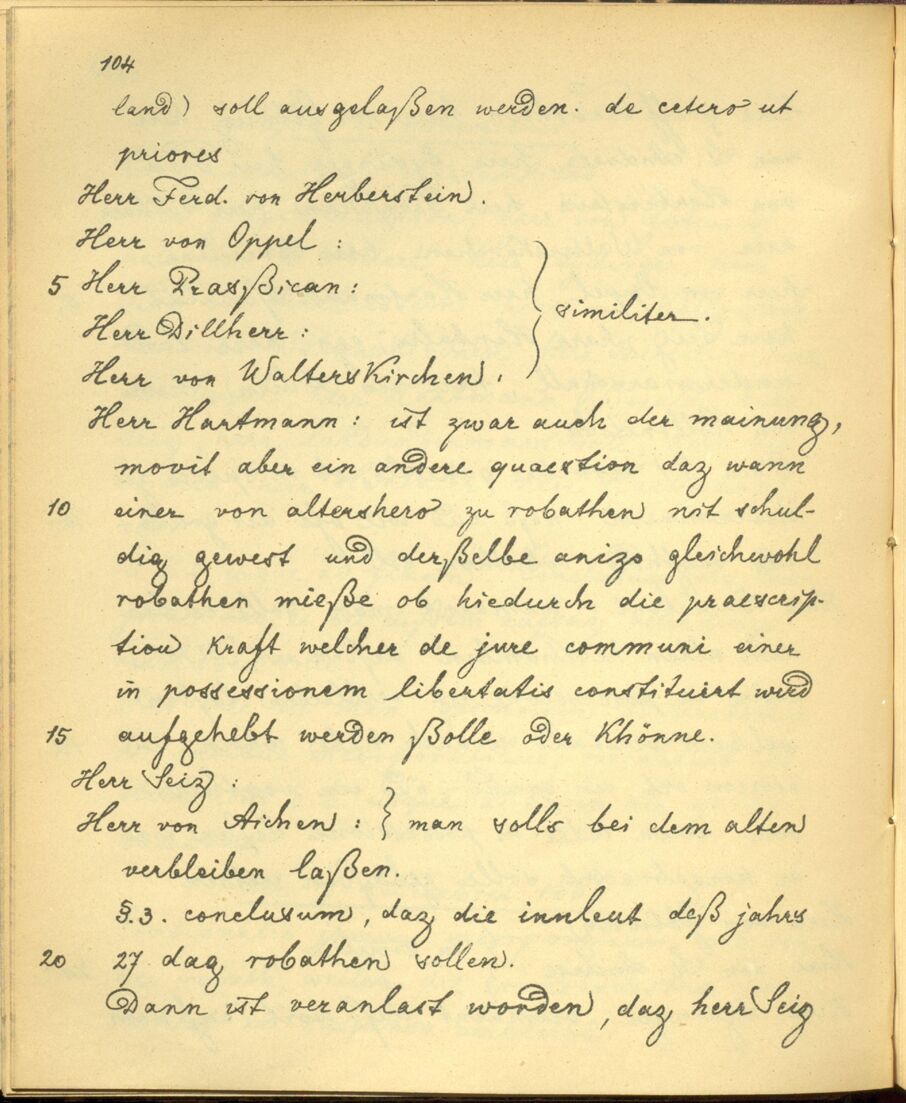 104
land) soll ausgelaßen werden. de cetero ut
priores
Herr Ferd. von Herberstein.
Herr von Oppel :
5 Herr Prasßican :
Herr Dillherr :
Herr von Walterskirchen.
} similiter.
Herr Hartmann : ist zwar auch der mainung,
movit aber ein andere quaestion daz wann
10 einer von altershero zu robathen nit schul-
dig gewest und derßelbe anizo gleichwohl
robathen mieße ob hiedurch die praescrip-
tion kraft welcher de jure communi einer
in possessionem libertatis constituirt wird
15 aufgehebt werden ßolle oder khönne.
Herr Seiz :
Herr von Aichen : } man solls bei dem alten
verbleiben laßen.
§.3. conclusum, daz die innleut deß jahrs
20 27 dag robathen sollen.
Dann ist veranlast worden, daz herr Seiz